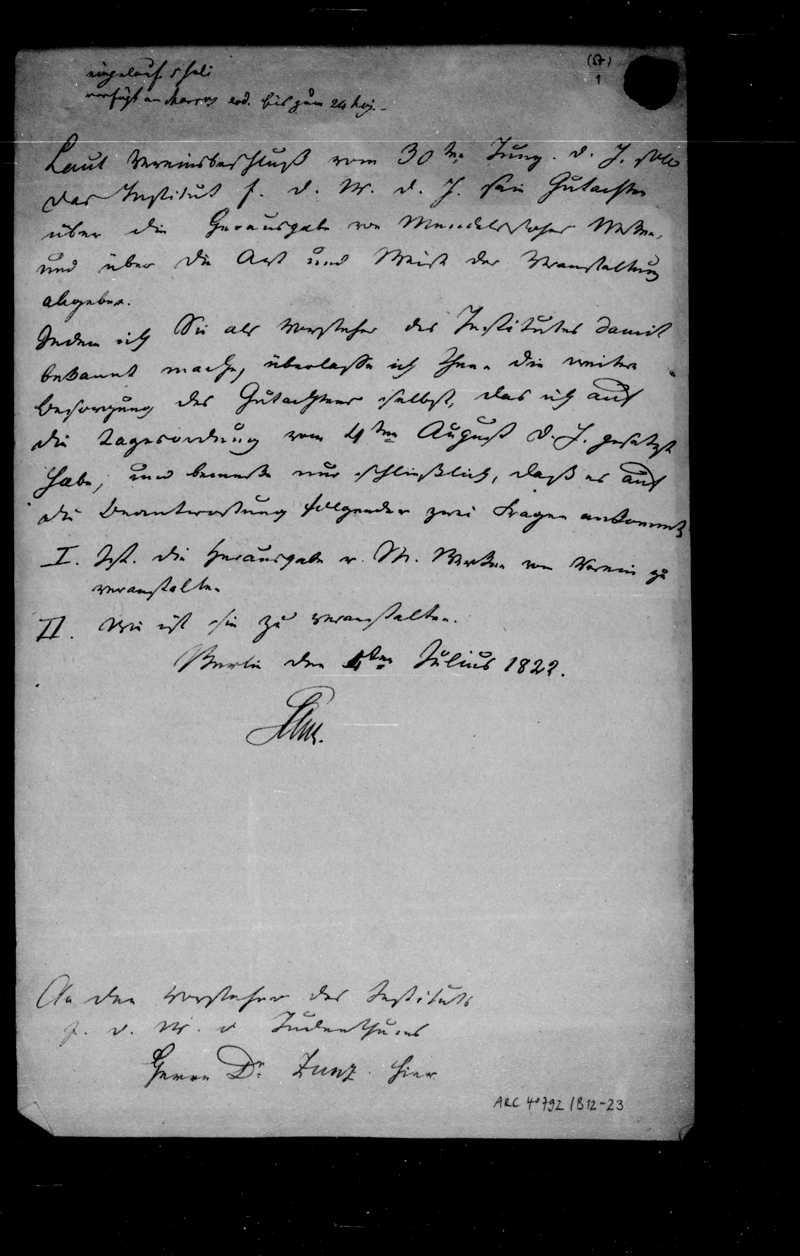 eingelauf. 5 Juli
verfügt an Marcus bis zum 24 huj.
(57)
1
Laut Vereinsbeschluß vom 30ten Juny. d. J. soll
das Institut f. d. W. d. J. sein Gutachten
über die Herausgabe von Mendelssohns Werken,
und über die Art und Weise der Veranstaltung
abgeben.
Indem ich Sie als Vorsteher des Institutes damit
bekannt mache, überlasse ich Ihnen die weitere
Besorgung des Gutachtens selbst, das ich auf
die Tagesordnung vom 4ten August d. J. gesetzt
habe, und bemerke nur schließlich, daß es auf
die Beantwortung folgender zwei Fragen ankommt
I. Ist die Herausgabe v. M. Werken vom Verein zu
veranstalten
II. Wie ist sie zu veranstalten.
Berlin den 4ten Julius 1822.
An den Vorsteher des Instituts
f. d. W. d Judenthums
Herrn Dr. Zunz. hier
ARC 4°792/B12-23